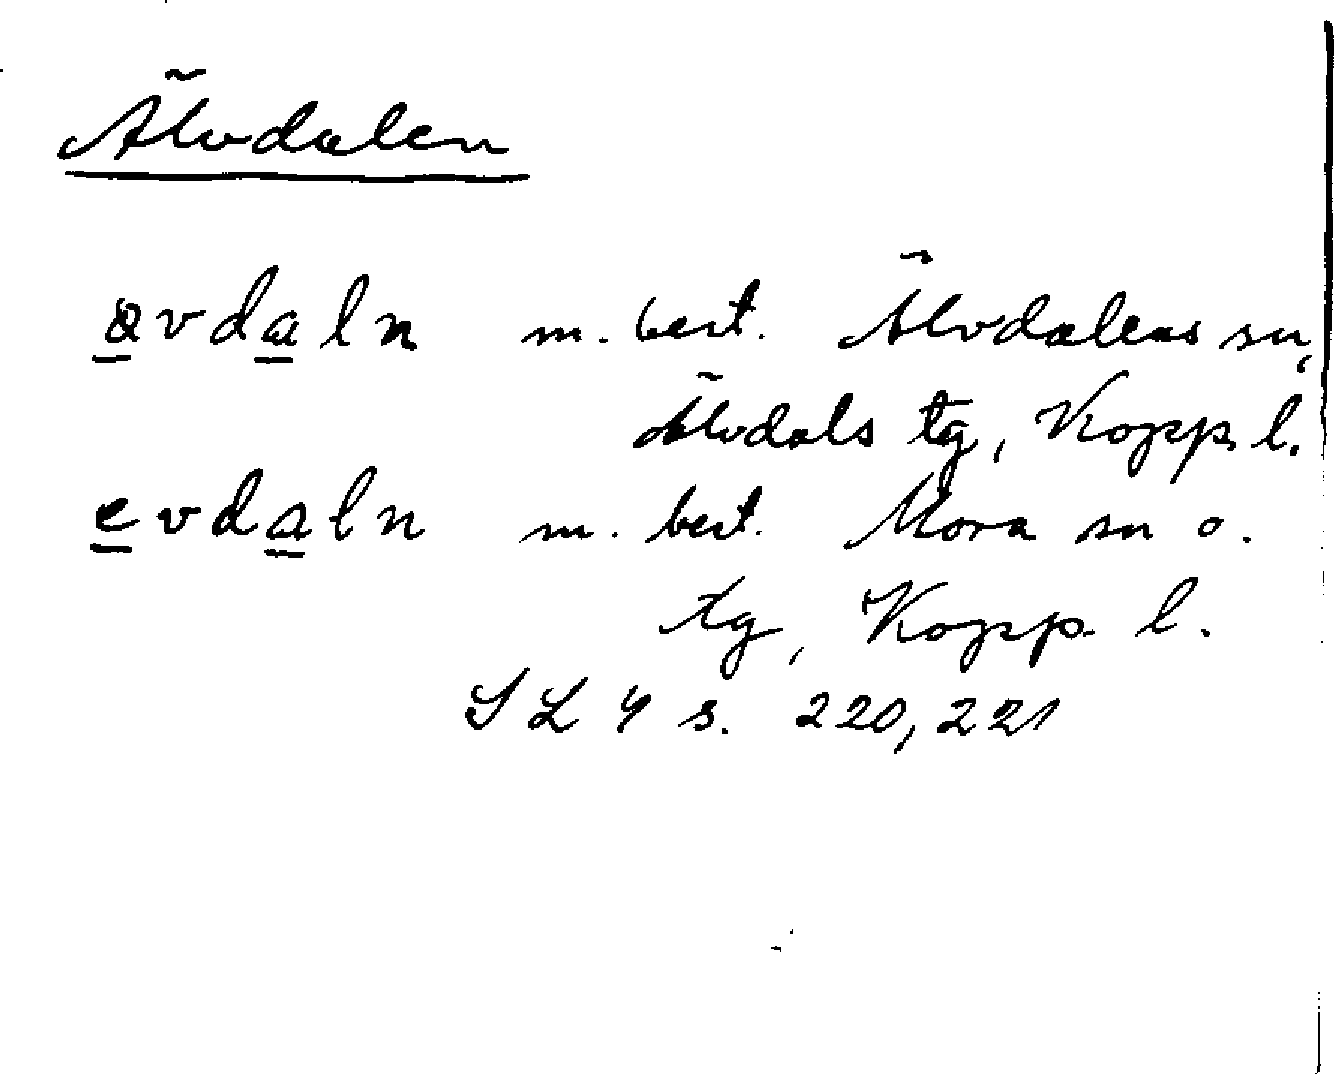 Älvdalen
avdaln m. best. Älvdalens sn,
Älvdals tg, Kopp. l.
evdaln m. best. Mora sn o.
tg, Kopp. l.
SL 4 s. 220, 221